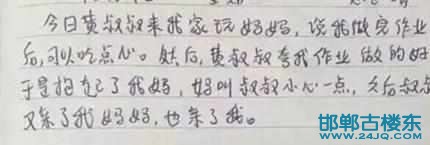 今日黄叔叔来我家玩妈妈，说我做完作业
后，可以吃点心。然后，黄叔叔夸我作业做的好
于是抱起了我妈，妈叫叔叔小心一点，之后叔叔
又亲了我妈妈，也亲了我。
邯郸古楼东
www.24JQ.com